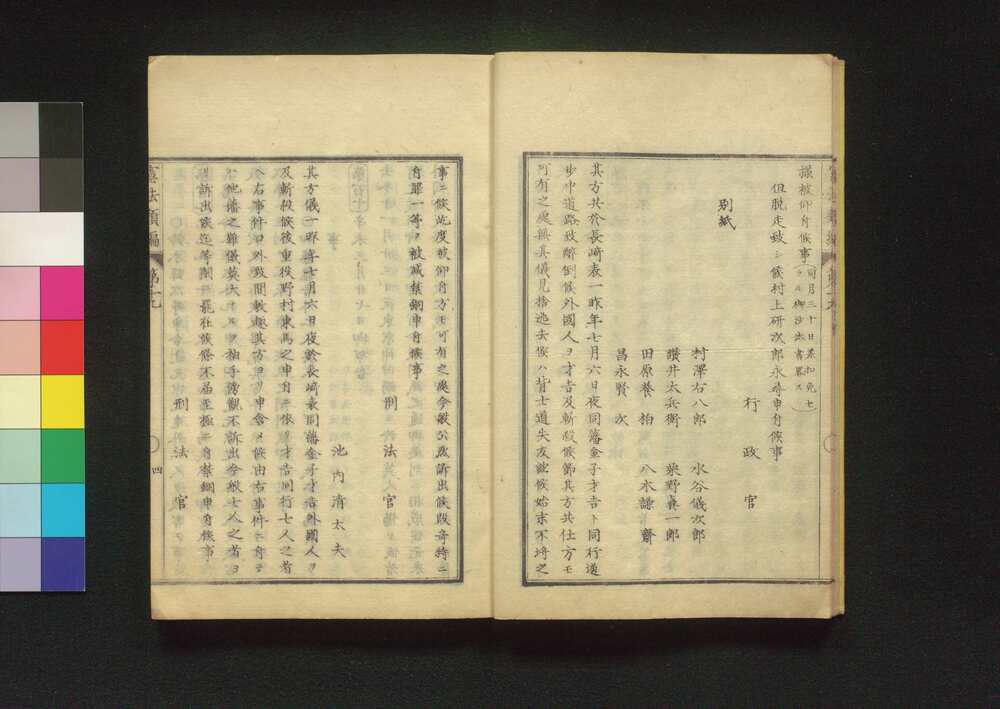 撮被仰付候事(同月三十日差扣免セラル御沙汰書略ス)
但脱走致シ候村上研次郎永尋申付候事
行政官
別紙
村澤右八郎 水谷儀次郎
讃井太兵衛 栗野眞一郎
田原養柏 八木謙齋
昌永賢次
其方共於長崎表一昨年七月六日夜同藩金子才吉ト同行遊
歩中道路致醉倒候外國人ヲ才吉及斬殺候節其方共仕方モ
可有之處無其儀見捨逃去候ハ背士道失友誼候始末不埒之
事ニ候此度被仰付方モ可有之處今般公裁訴出候段奇特ニ
付罪一等ヲ被減禁錮申付候事
刑法官
池内清太夫
其方儀一昨年七月六日夜於長崎表同藩金子才吉外國人ヲ
及斬殺候後重役野村東馬之申付ニ依リ才吉同行七人之者
右事件口外致間敷趣其方
他藩之難儀莫大
訴出候迄等閑ニ罷在候條不届至極ニ付禁錮申付候事
刑法官
憲法類編 第十九
四